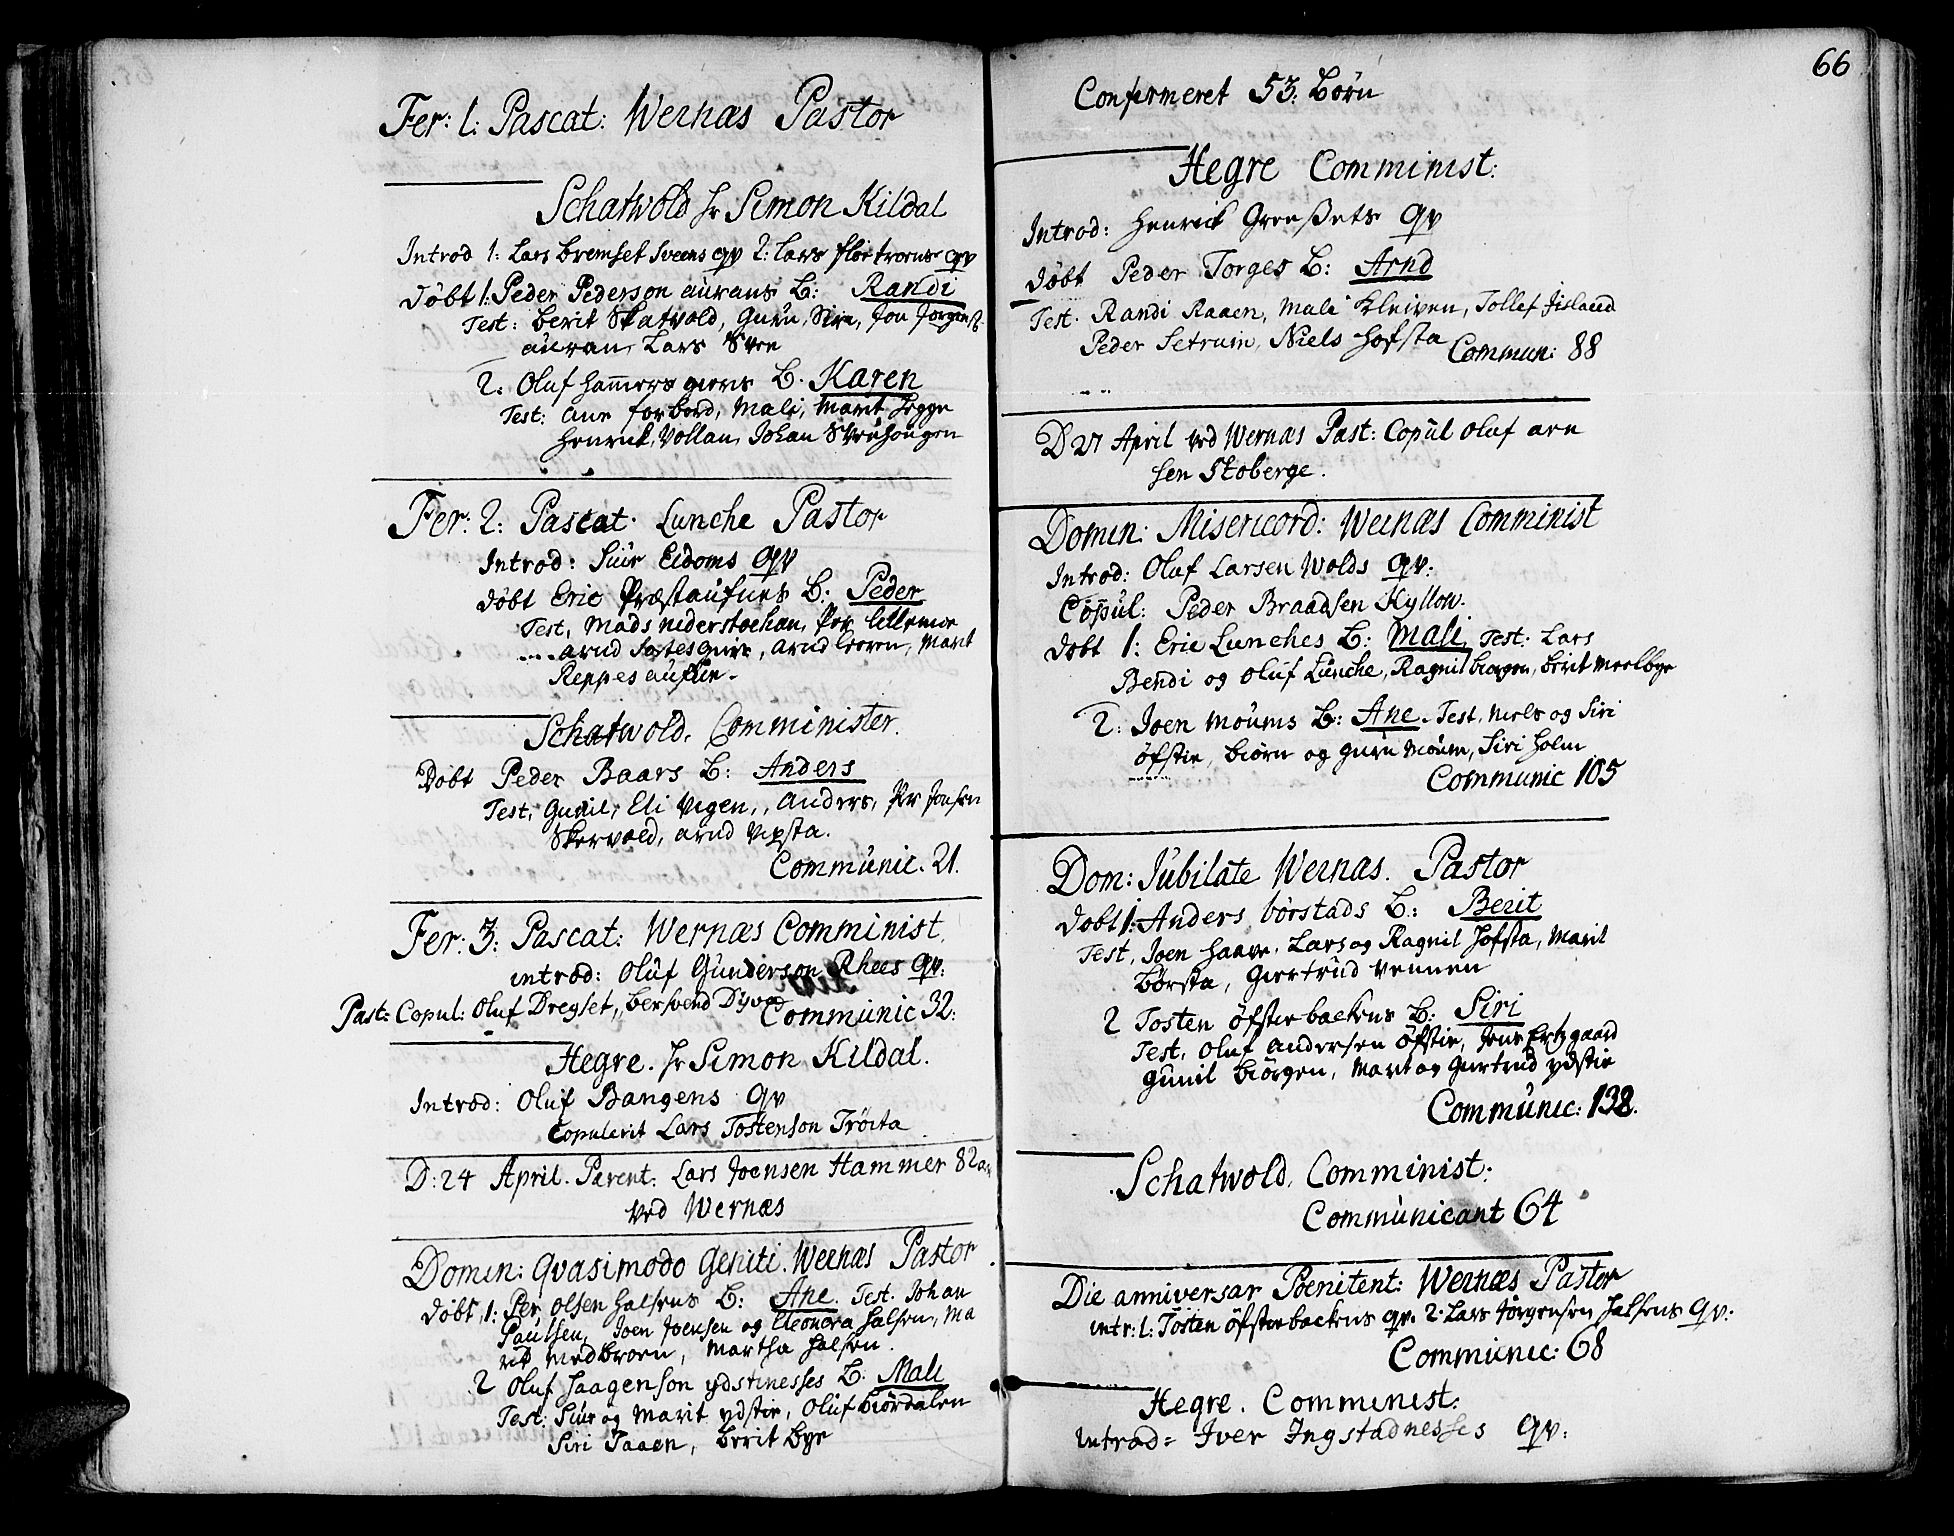 Fer: 1: Pascat: Wernæs Pastor
Schatwold hr Simon Kildal
Introd 1: Lars Bremset Sveens qv 2: Lars qv
Døbt 1: Peder Pederson aurans B: Randi
Test: Berit Skatvold, Guru, Siri, Jon
auran, Lars
2: Oluf hamers B. Karen
Test: Ane forbord, Mali, Marit
Henrich, Vollan, Johan
Fer: 2: Pascat. Lunche Pastor
Introd: Siur Eidoms qv
døbt Eric B: Peder
Test, Mads
arnd, Marit
Reppes
Schatwold. Comminister.
Døbt Peder Baars B: Anders
Test, Gunil, Eli Vigen, Anders, Pr Jonsen
arnd
Communic. 21.
Fer: 3: Pascat: Wernæs Comminist.
introd: Oluf Gunderson Rhees qv:
Past: Copul: Oluf Dregset,
Communic 32:
Hegre. hr Simon Kildal.
Introd: Oluf Bangens qv
Copulerit Lars Tostenson Trøita
D: 24 April. Parent: Lars Joensen Hammer 82
ved Wernæs
Domin: Quasimodo Geniti. Wernæs Pastor
døbt 1: Per Olsen Halsens B: Ane. Test. Johan
Paulsen, Joen Joensen og Eleonora Halsen, Ma
rit Medbroen, Martha Halsen.
2 Oluf Haagenson ydstinesses B. Mali
Test: Siur og Marit ydstie, Oluf Biørdalen
Siri, Berit Bye
66
Confirmeret 53: Børn
Hegre Comminist:
Introd: Henrich qv
døbt Peder Torges B: Arnd
Test. Randi Raaen, Mali Kleiven, Tollef
Peder, Niels Hofsta
Commun: 88
D 27 April ved Wernæs Past: Copul Oluf arn
sen Stoberge.
Domin: Misericord: Wernæs Comminist
Introd: Oluf Larsen Wolds qv:
Copul: Peder Braadsen Kyllow.
døbt 1: Eric Lunches B: Mali, Test: Lars
Bendi og Oluf Lunche, Ragnil biørgen, berit
2: Joen Moums B: Ane. Test, Niels og Siri
øfstie, biørn og Guru Moum, Siri Holm
Communic 105
Dom: Jubilate Wernæs. Pastor
Døbt 1: Anders børstads B: Berit
Test, Joen Haave, Lars og Ragnil Hofsta, Marit
børsta, Giertrud Vennen
2 Tosten øfstie backens B: Siri
Test, Oluf Andersen øfstie, Jens Ertzgaard
Gunil biørgen, Marit og Giertrud ydstie
Communic: 138.
Schatwold. Comminist:
Communicant 64
Die anniversar Poenitent: Wernæs Pastor
intr: 1: Tosten øfstie backens qv. 2: Lars Jørgensen Halsens qv:
Communic: 68
Hegre. Comminist:
introd: Iver Ingstadnesses qv: